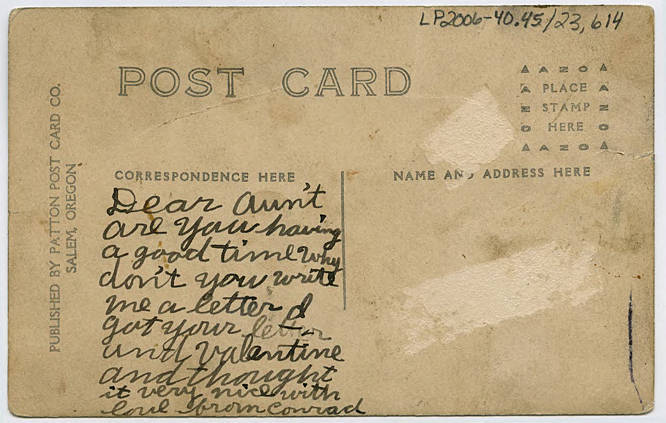 LP2006-40.45/23,614
POST CARD
A A Z O A
A PLACE A
Z STAMP N
O HERE O
A A Z O A
CORRESPONDENCE HERE
NAME AND ADDRESS HERE
PUBLISHED BY PATTON POST CARD CO.
SALEM, OREGON
Dear Aun't
are you having
a good time why
don't you write
me a letter I
got your letter
and valentine
and thought
it very nice with
love from Conrad